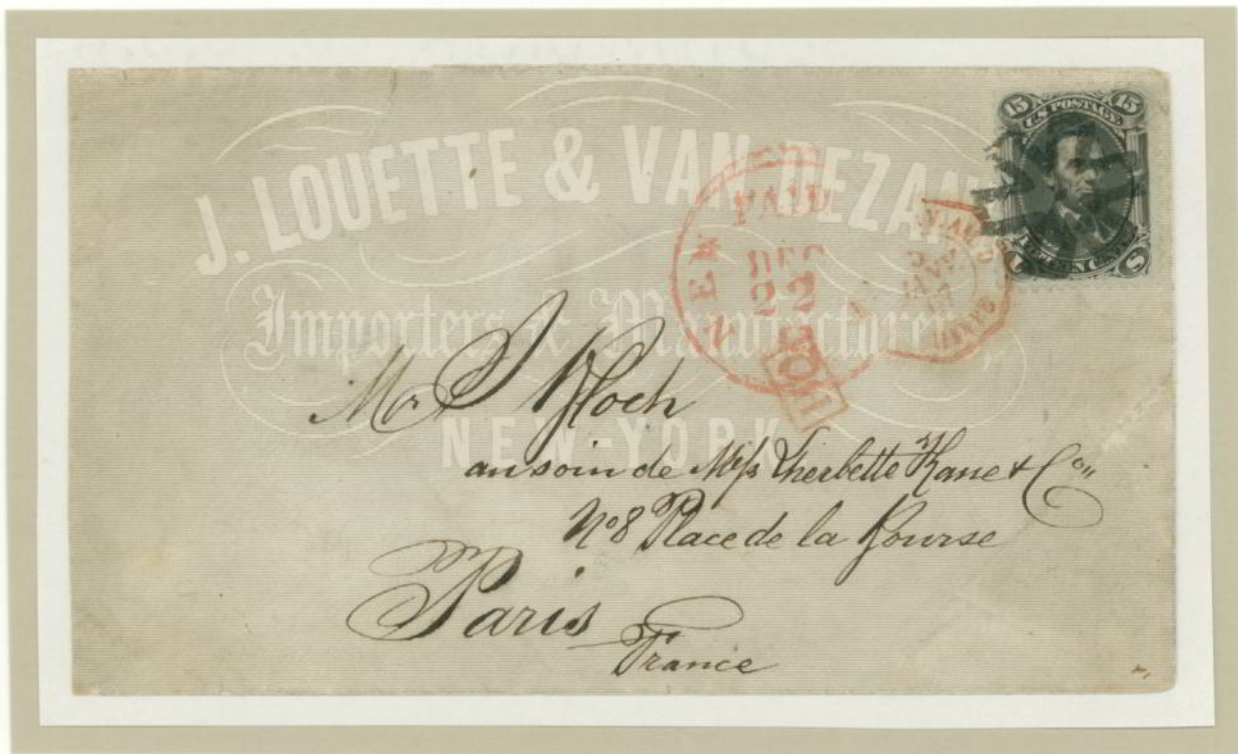 J. LOUETTE & VAN DEZAN
Importers & Manufacturers,
NEW-YORK
15 15
U.S. POSTAGE.
FIFTEEN CENTS
U S
NEW PAID
DEC
22
Mr J Bloch
au soin de Mess Lherbette Kane & Co
No 8 Place de la Bourse
Paris
France